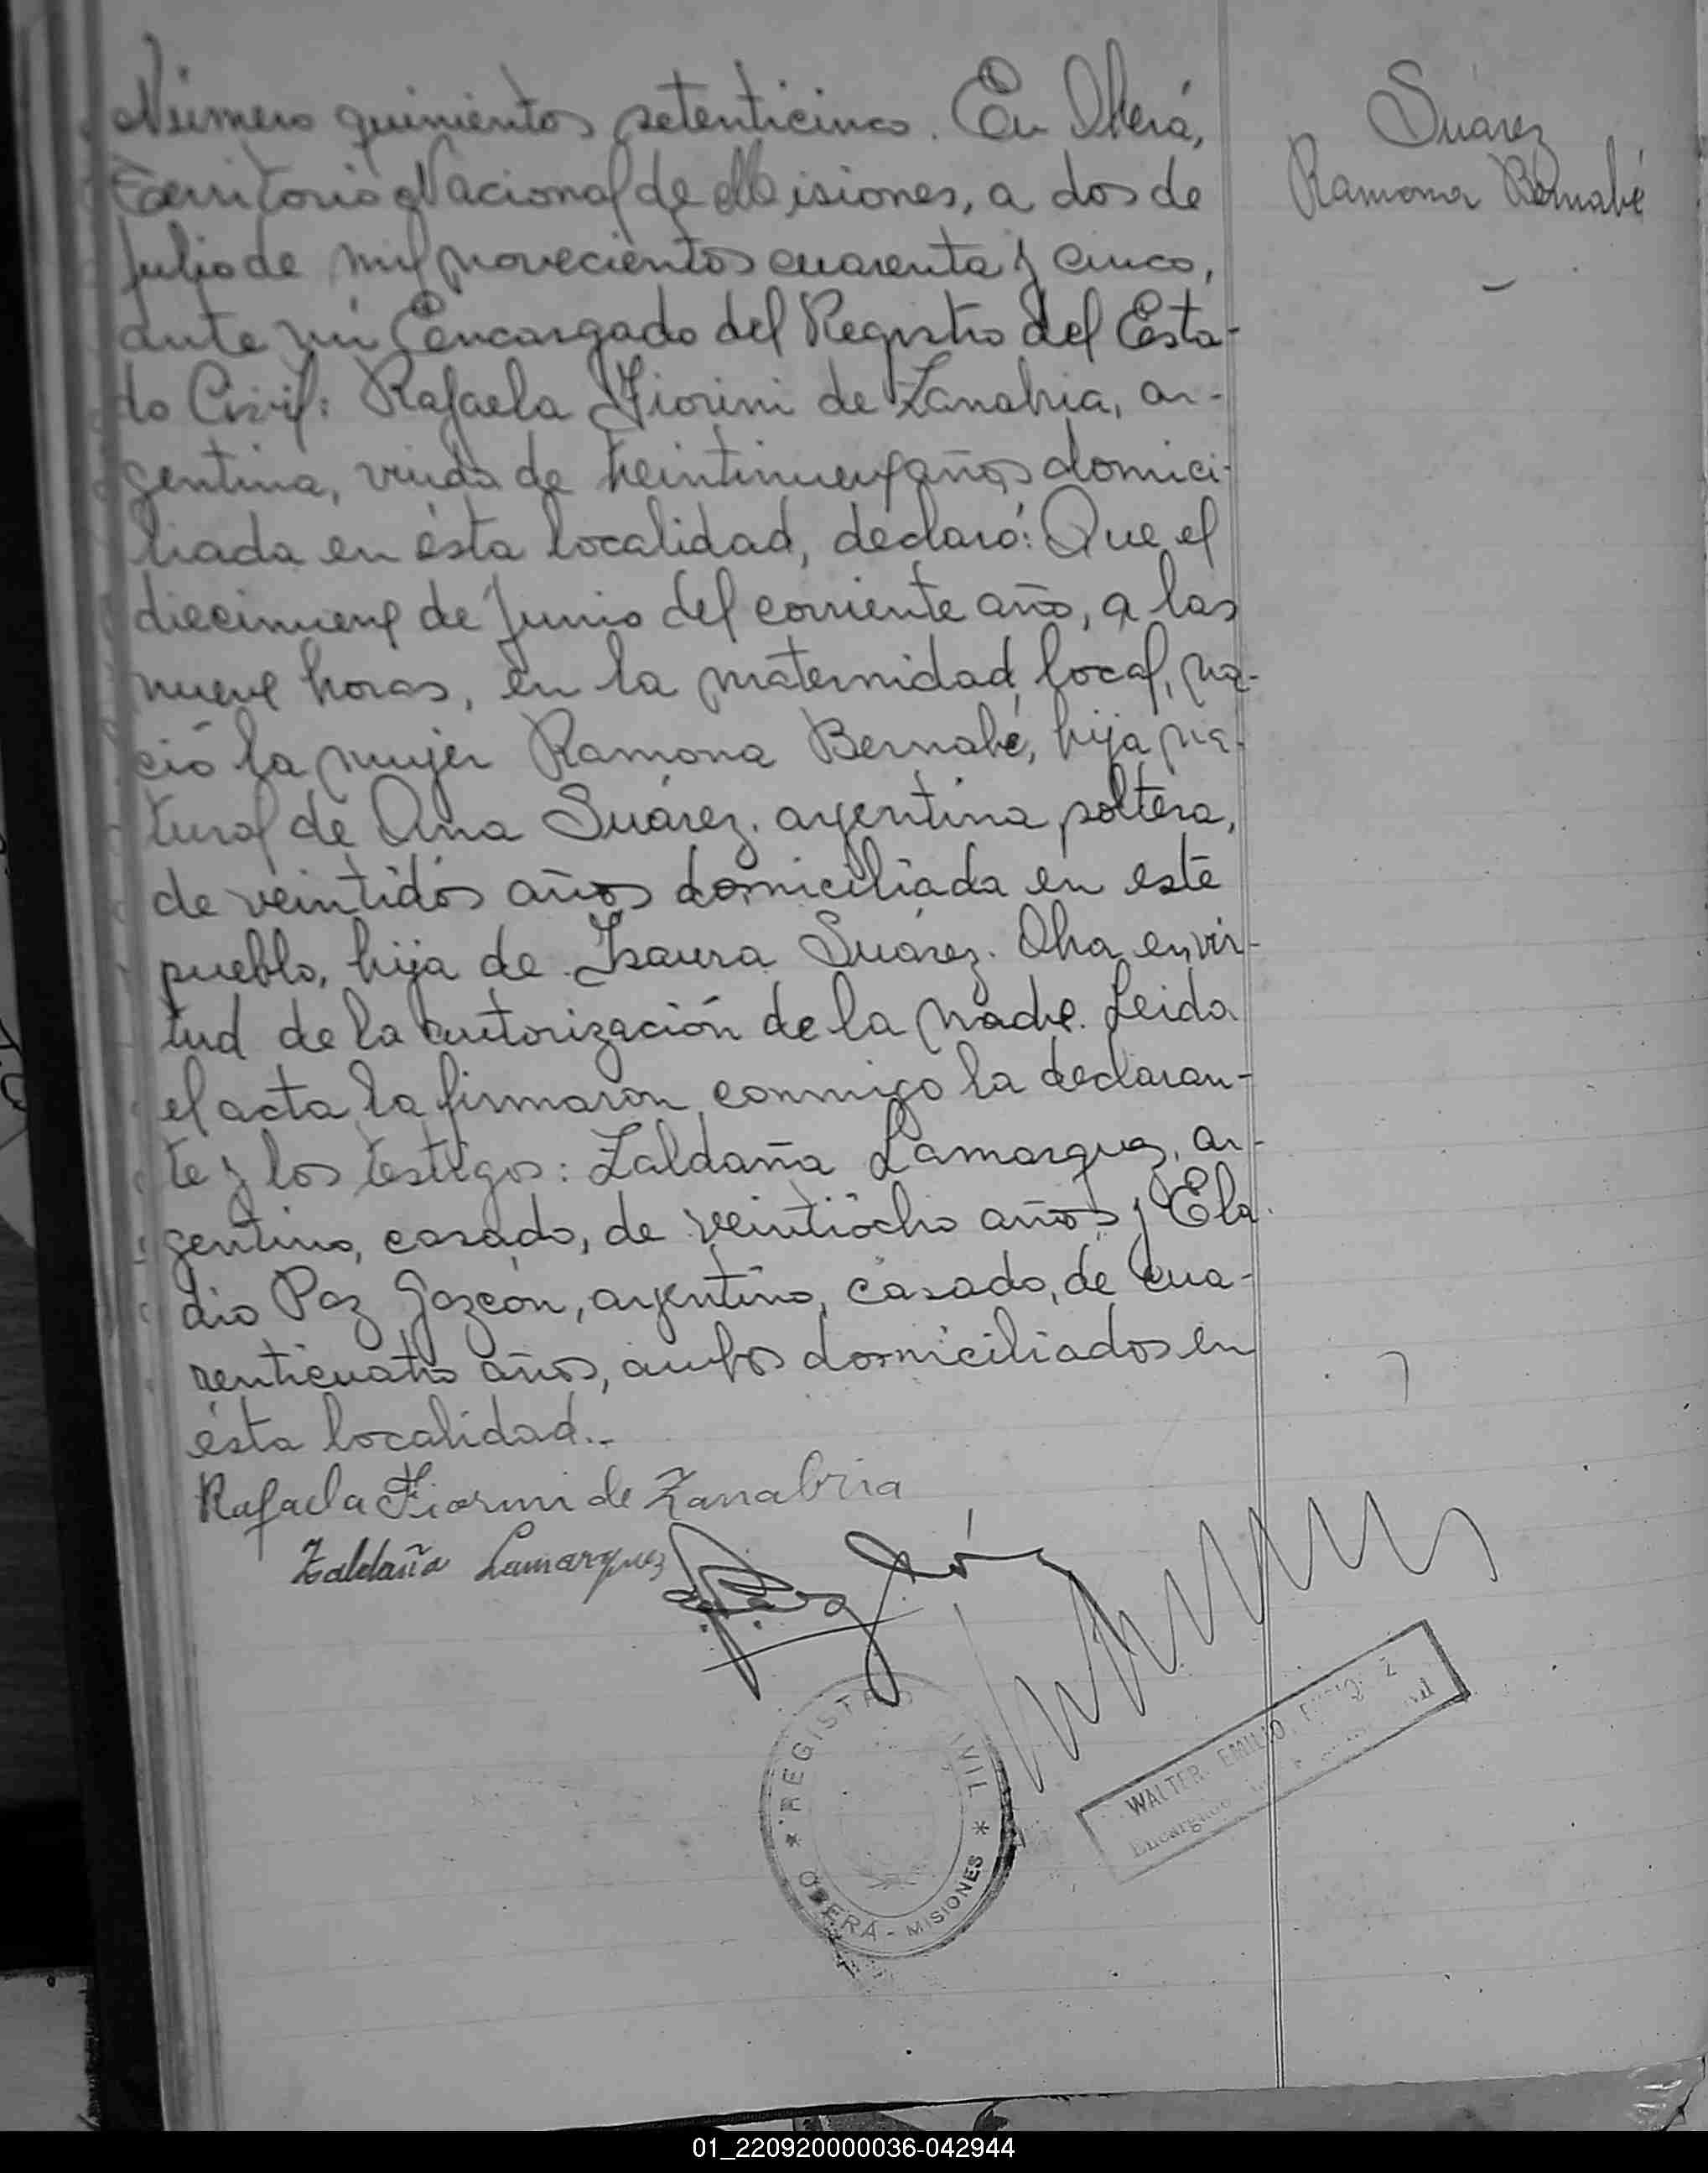 Número quinientos setenticinco. En Oberá,
Territorio Nacional de Misiones, a dos de
Julio de mil novecientos cuarenta y cinco,
ante mí Encargado del Registro del Esta-
do Civil: Rafaela Fiorini de Zanabria, ar-
gentina, viuda de treintinueve años domici-
liada en ésta localidad, declaró: Que el
diecinueve de Junio del corriente año, a las
nueve horas, en la maternidad local, na-
ció la mujer Ramona Bernabé, hija na-
tural de Ana Suárez. argentina soltera,
de veintidós años domiciliada en este
pueblo, hija de Isaura Suárez. Obra en vir-
tud de la autorización de la madre. Leida
el acta la firmaron conmigo la declaran-
te y los testigos: Zaldaña Lamarquez, ar-
gentino, casado, de veintiocho años y Ela-
dio Paz Gazcón, argentino, casado, de cua-
renticuatro años, ambos domiciliados en
ésta localidad.-
Rafaela Fiorini de Zanabria
Zaldaña Lamarquez
Suárez
Ramona Bernabé
REGISTRO CIVIL
* OBERÁ - MISIONES *
WALTER EMILIO
Encargado
01_220920000036-042944